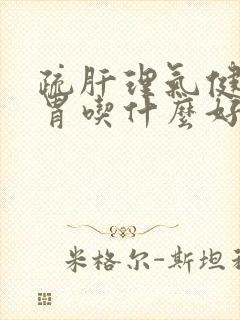 疏肝理氣健
胃喫什麼好
米格尔-斯坦